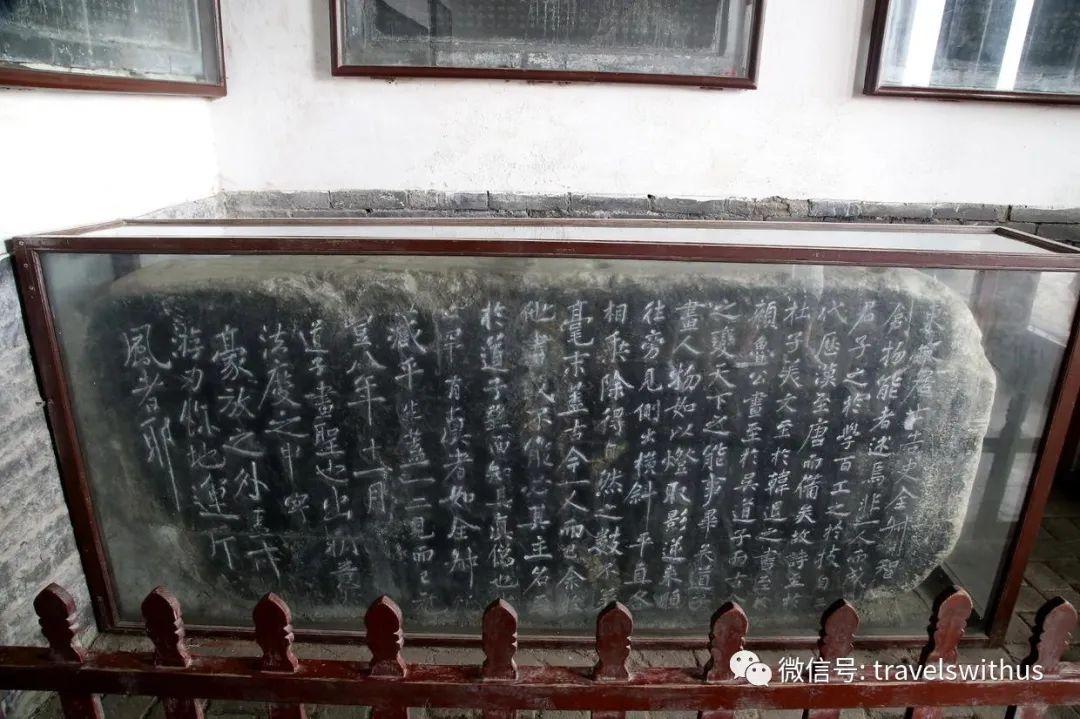 史全 智
創物能者述焉非一人而成
君子之於學百工之於技自
代歷漢至唐而備矣故詩至於
杜子美文至於韓退之書至於
顏魯公畫至於吳道子而古
之變天下之能事畢矣道子
畫人物如以燈取影逆來順
往旁見側出橫斜平直各
相乘除得自然之數不差
毫末蓋古今一人而已余於
他畫或不能必其主名
於道子望而知其真偽也
世罕有真者如全叔所
藏平生蓋一二見而已元
豐八年十一月
道子畫聖也出新意
法度之中寄
豪放之外
游刃餘地運斤
風者耶
微信号: travelswithus